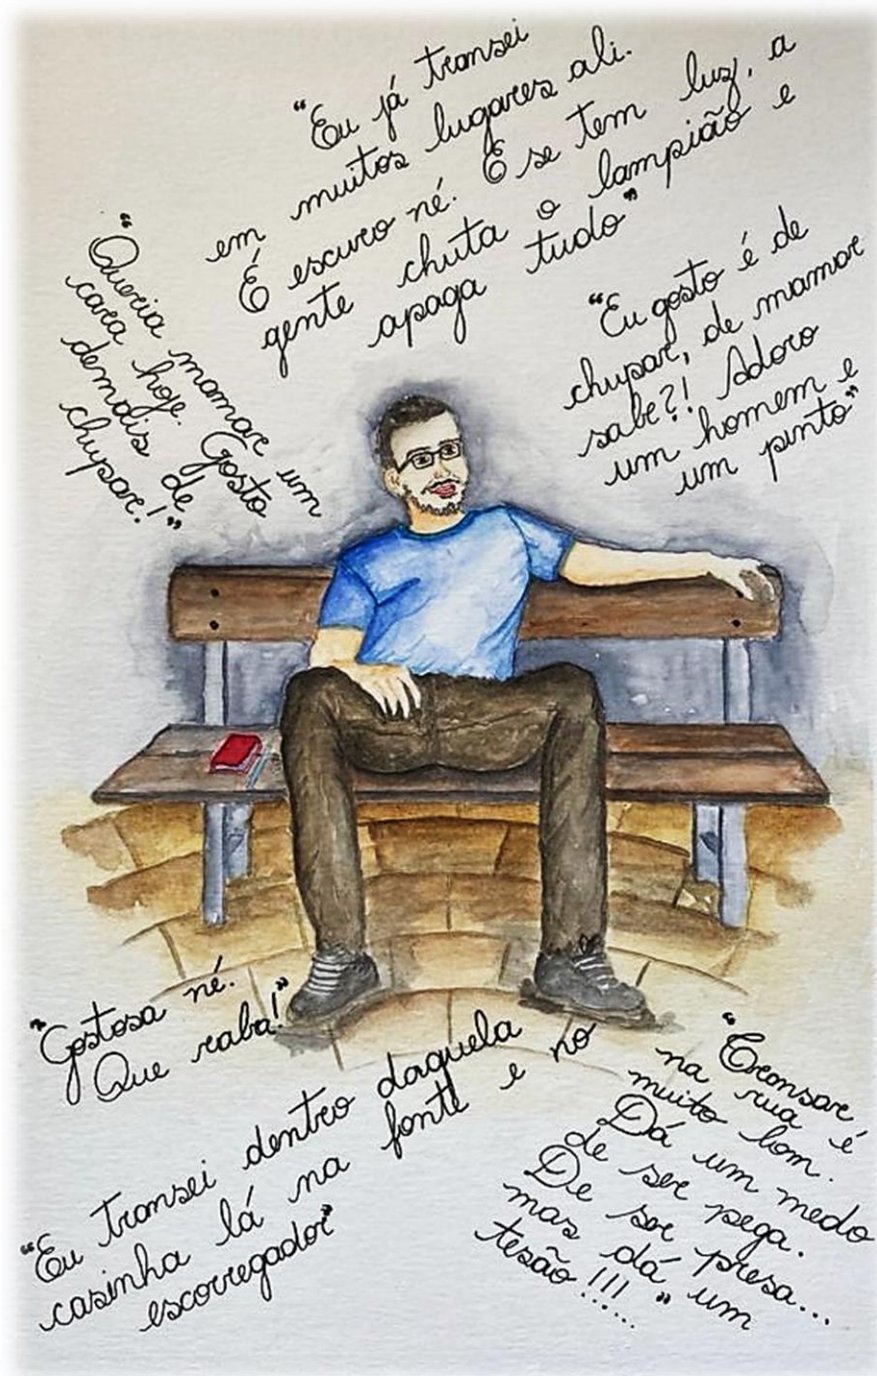 "Eu já transei
em muitos lugares ali.
É escuro né. E se tem luz, a
gente chuta o lampião e
apaga tudo"
"Queria mamar um
cara hoje. Gosto
demais de
chupar!"
"Eu gosto é de
chupar, de mamar
sabe?! Adoro
um homem e
um pinto"
"Gostosa né.
Que raba!"
"Eu transei dentro daquela
casinha lá na fonte e no
escorregador"
"Transar
na rua é
muito bom.
Dá um medo
de ser pega.
De ser presa...
mas dá um
tesão!!!..."